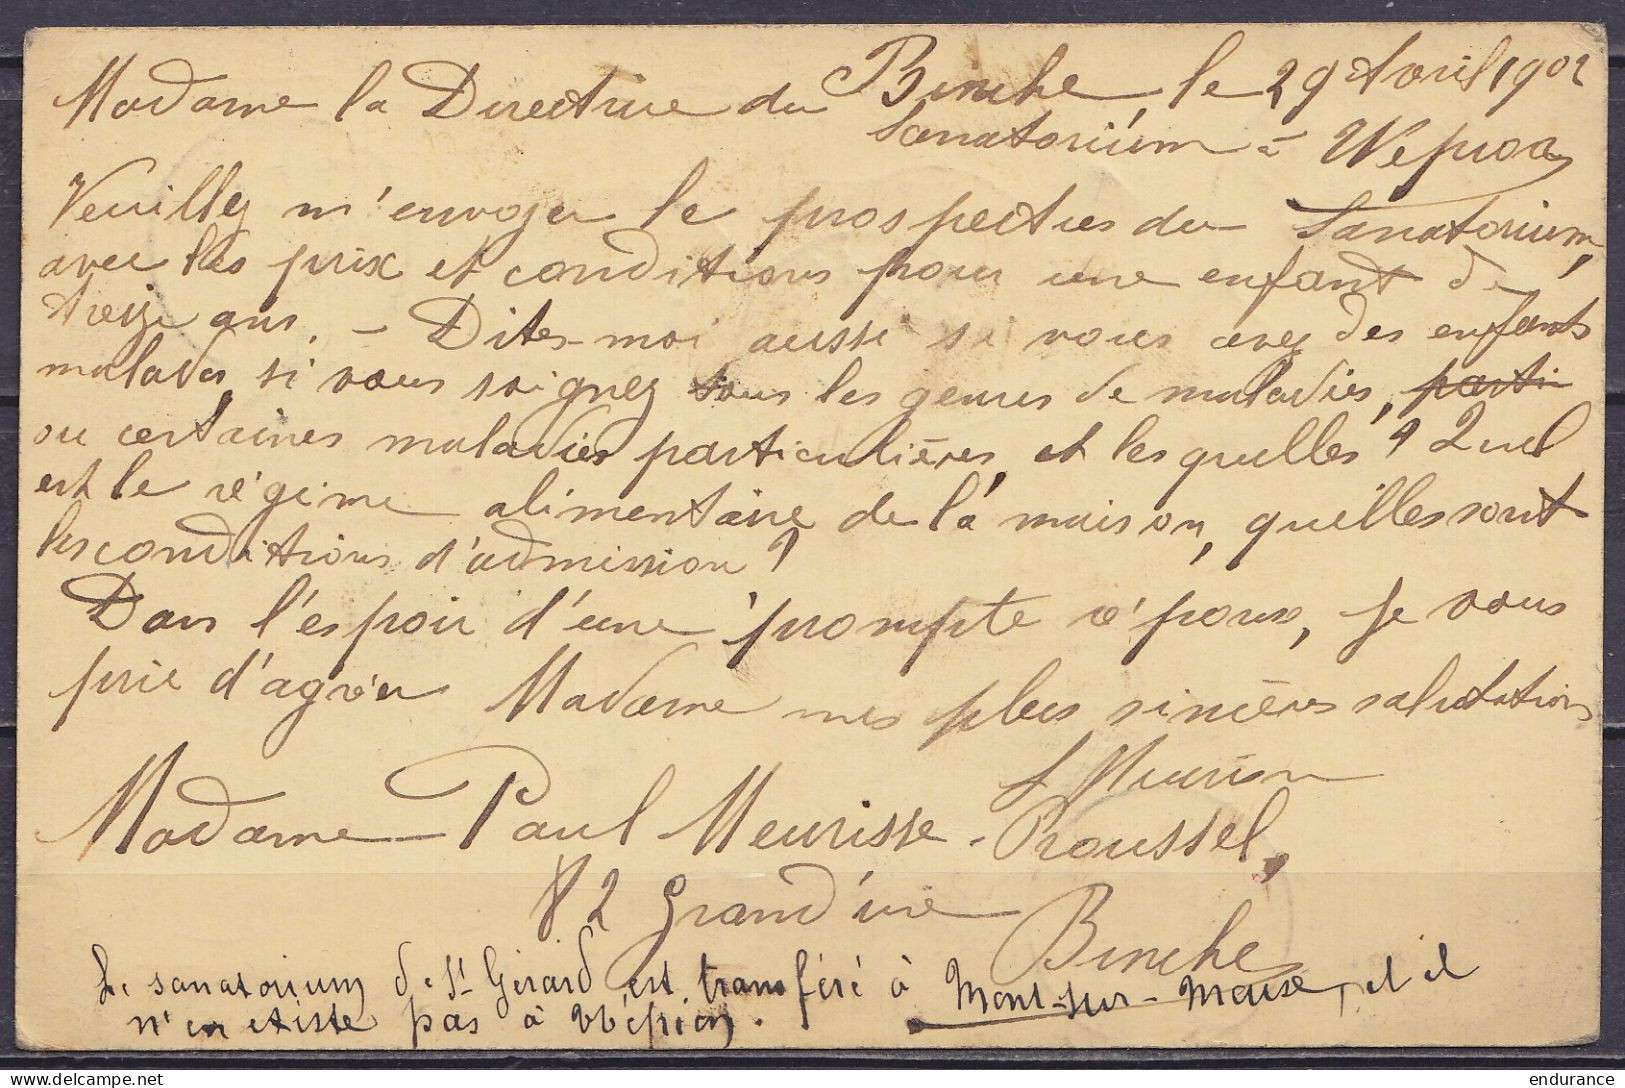 Binche, le 29 Avril 1902
Madame la Directrice du
Sanatorium à Wépion
Veuillez m'envoyer le prospectus du Sanatorium,
avec les prix et conditions pour une enfant de
treize ans. - Dites-moi aussi si vous avez des enfants
malades, si vous soignez tous les genres de maladies, parti
ou certaines maladies particulières, et lesquelles ? Quel
est le régime alimentaire de la maison, quelles sont
les conditions d'admission ?
Dans l'espoir d'une prompte réponse, je vous
prie d'agréer Madame mes plus sincères salutations
Madame Paul Meurisse-Roussel,
82 Grand'rue
Binche
Le sanatorium de St Gérard est transféré à Mont-sur-Meuse, et il
n'en existe pas à Wépion.
delcampe.net
endurance